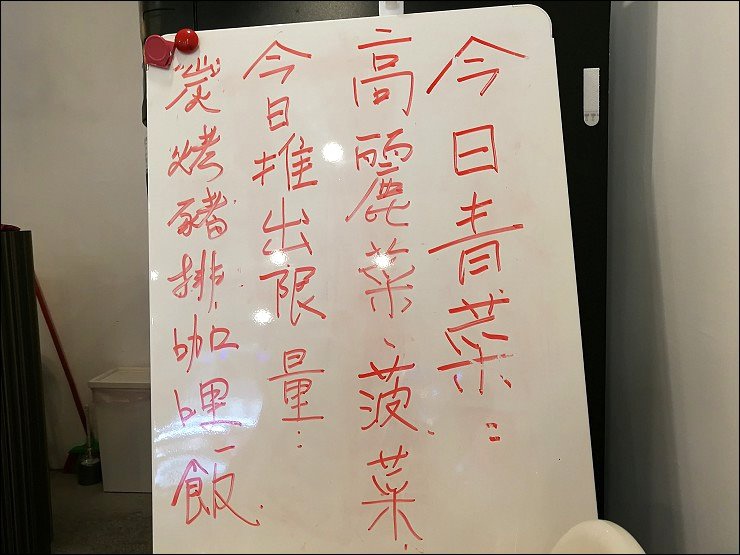 今日青菜：
高麗菜、菠菜
今日推出限量：
炭烤豬排咖哩飯